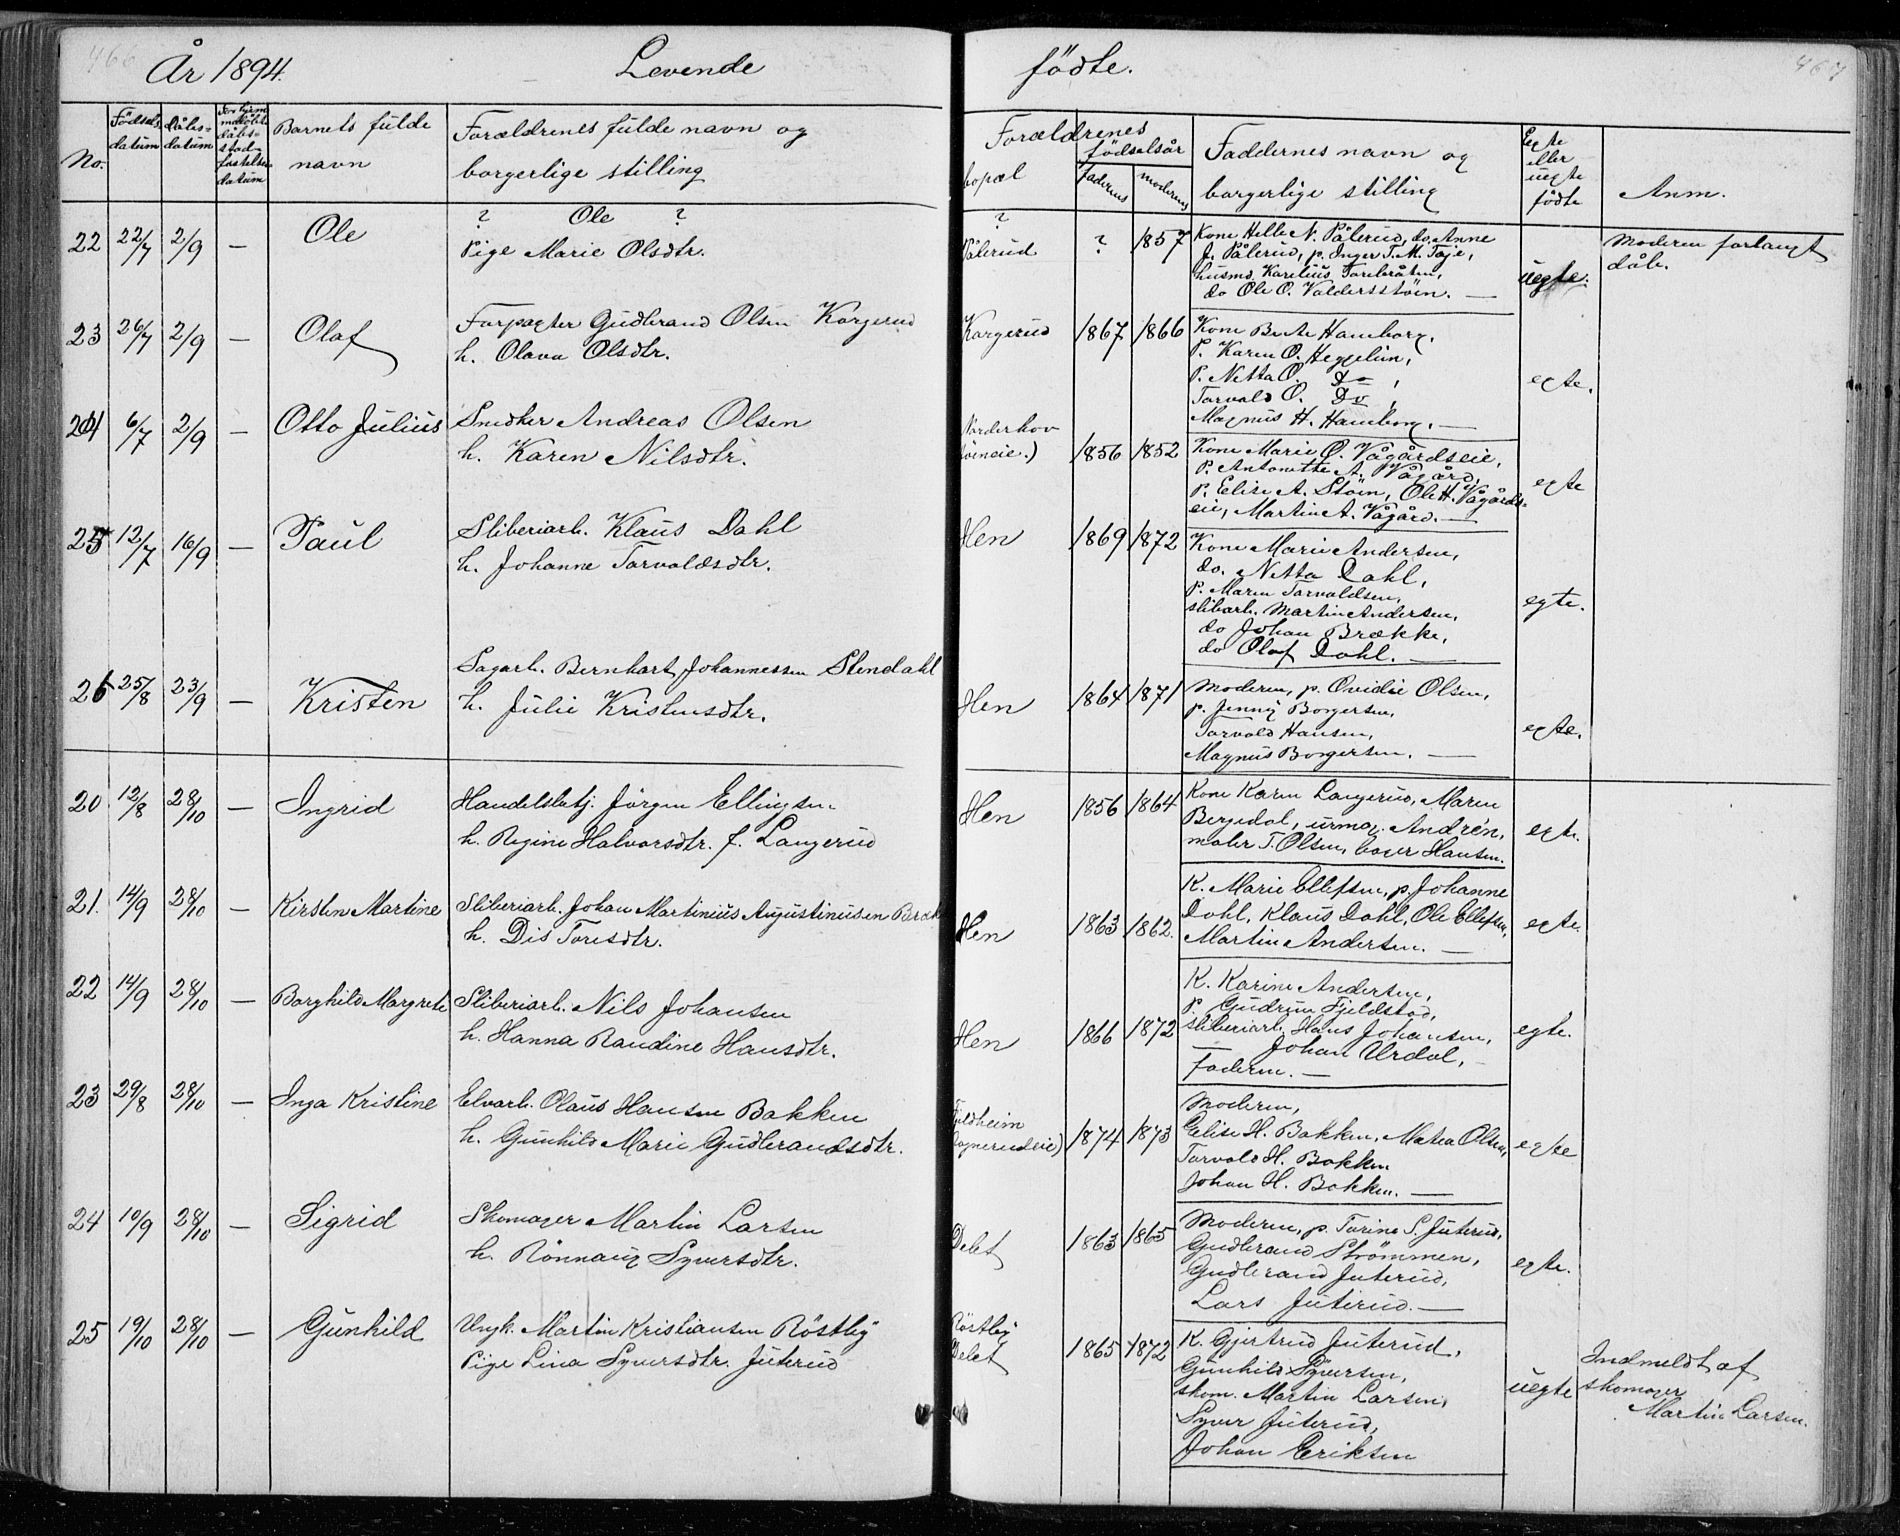 466
År 1894.
Levende
födte.
467
No.
Födsels datum
Dåbs= datum
dåbs= stad= fæstelses datum
Barnets fulde navn
Forældrenes fulde navn og borgerlige stilling
Forældrenes
bopæl
födselsår
faderens
moderens
Faddernes navn og borgerlige stilling
Egte eller uegte födte
Anm.
22 22/7 2/9 — Ole
? Ole ?
Pige Marie Olsdtr.
?
Pålerud ? 1857
Kone Helle N. Pålerud, do. Anne
J. Pålerud, p. Inger T. M. Töje,
husmd. Karelius Torebråten,
do Ole O. Valdersstöen. —
uegte.
Moderen forlangt
dåb.
23 26/7 2/9 — Olaf
Forpagter Gudbrand Olsen Korgerud
h. Olava Olsdtr.
Korgerud 1867 1866
Kone Berte Hamborg,
P. Karen O. Heggelien,
P. Netta O. Do,
Torvald O. Do,
Magnus H. Hamborg. —
egte.
24 6/7 2/9 — Otto Julius
Snedker Andreas Olsen
h. Karen Nilsdtr.
Norderhov
1856 1852
Kone Marie O. Vågårdseie,
P. Antonette A. Vågård,
P. Elise A. Stöen, Ole H. Vågårds=
eie, Martin A. Vågård. —
egte
25 12/7 16/9 — Paul
Sliberiarb. Klaus Dahl
h. Johanne Torvaldsdtr.
Hen 1869 1872
Kone Marie Andersen,
do. Netta Dahl,
P. Maren Torvaldsen,
slibarb. Martin Andersen,
do Johan Brække,
do Olaf Dahl. —
egte.
26 25/8 23/9 — Kristen
Sagarb. Bernhart Johannessen Stendahl
h. Julie Kristensdtr.
Hen 1864 1871
Moderen, p. Ovidie Olsen,
p. Jenny Borgersen,
Torvald Hansen,
Magnus Borgersen. —
egte.
20 12/8 28/10 — Ingrid
Handelsbetj. Jörgen Ellingsen
h. Regine Halvorsdtr. f. Langerud
Hen 1856 1864
Kone Karen Langerud, Maren
Bergedal, urmag. Andrén,
maler T. Olsen, bager Hansen.
egte.
21. 14/9 28/10 — Kirsten Martine
Sliberiarb. Johan Martinius Augustinusen Bræk
h. Dis Toresdtr.
Hen 1863 1862.
K. Marie Ellefsen, p. Johanne
Dahl, Klaus Dahl, Ole Ellefsen,
Martin Andersen. —
egte.
22 14/9 28/10 — Borghild Margrete
Sliberiarb. Nils Johansen
h. Hanna Randine Hansdtr.
Hen 1866 1872
K. Karine Andersen,
p. Gudrun Fjeldstad,
sliberiarb. Hans Johansen,
Johan Urdal, —
Faderen. —
egte.
23 29/8 28/10 — Inga Kristine
Elvarb. Olaus Hansen Bakken
h. Gunhild Marie Gudbrandsdtr.
1874 1873
Moderen,
Elise H. Bakken, Matea Olsen,
Torvald H. Bakken
Johan H. Bakken. —
egte
24 10/9 28/10 — Sigrid
Skomager Martin Larsen
h. Rönnaug Syversdtr.
Delet 1863 1865
Moderen, p. Torine S. Juterud,
Gudbrand Strömmen,
Gudbrand Juterud,
Lars Juterud. —
egte.
25 19/10 28/10 — Gunhild
Ungk. Martin Kristiansen Röstby
Pige Lina Syversdtr. Juterud
Röstby
Delet 1865 1872
K. Gjertrud Juterud,
Gunhild Syversen,
skom. Martin Larsen,
Syver Juterud,
Johan Eriksen
uegte
Indmeldt af
skomager
Martin Larsen.